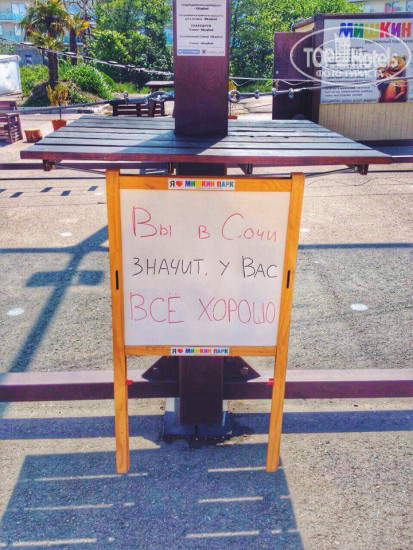 МИШКИН
TopHotels
ФОТО ТУРИСТА
Я ❤ МИШКИН ПАРК
Вы в Сочи
значит, у Вас
ВСЁ ХОРОШО
Я ❤ МИШКИН ПАРК